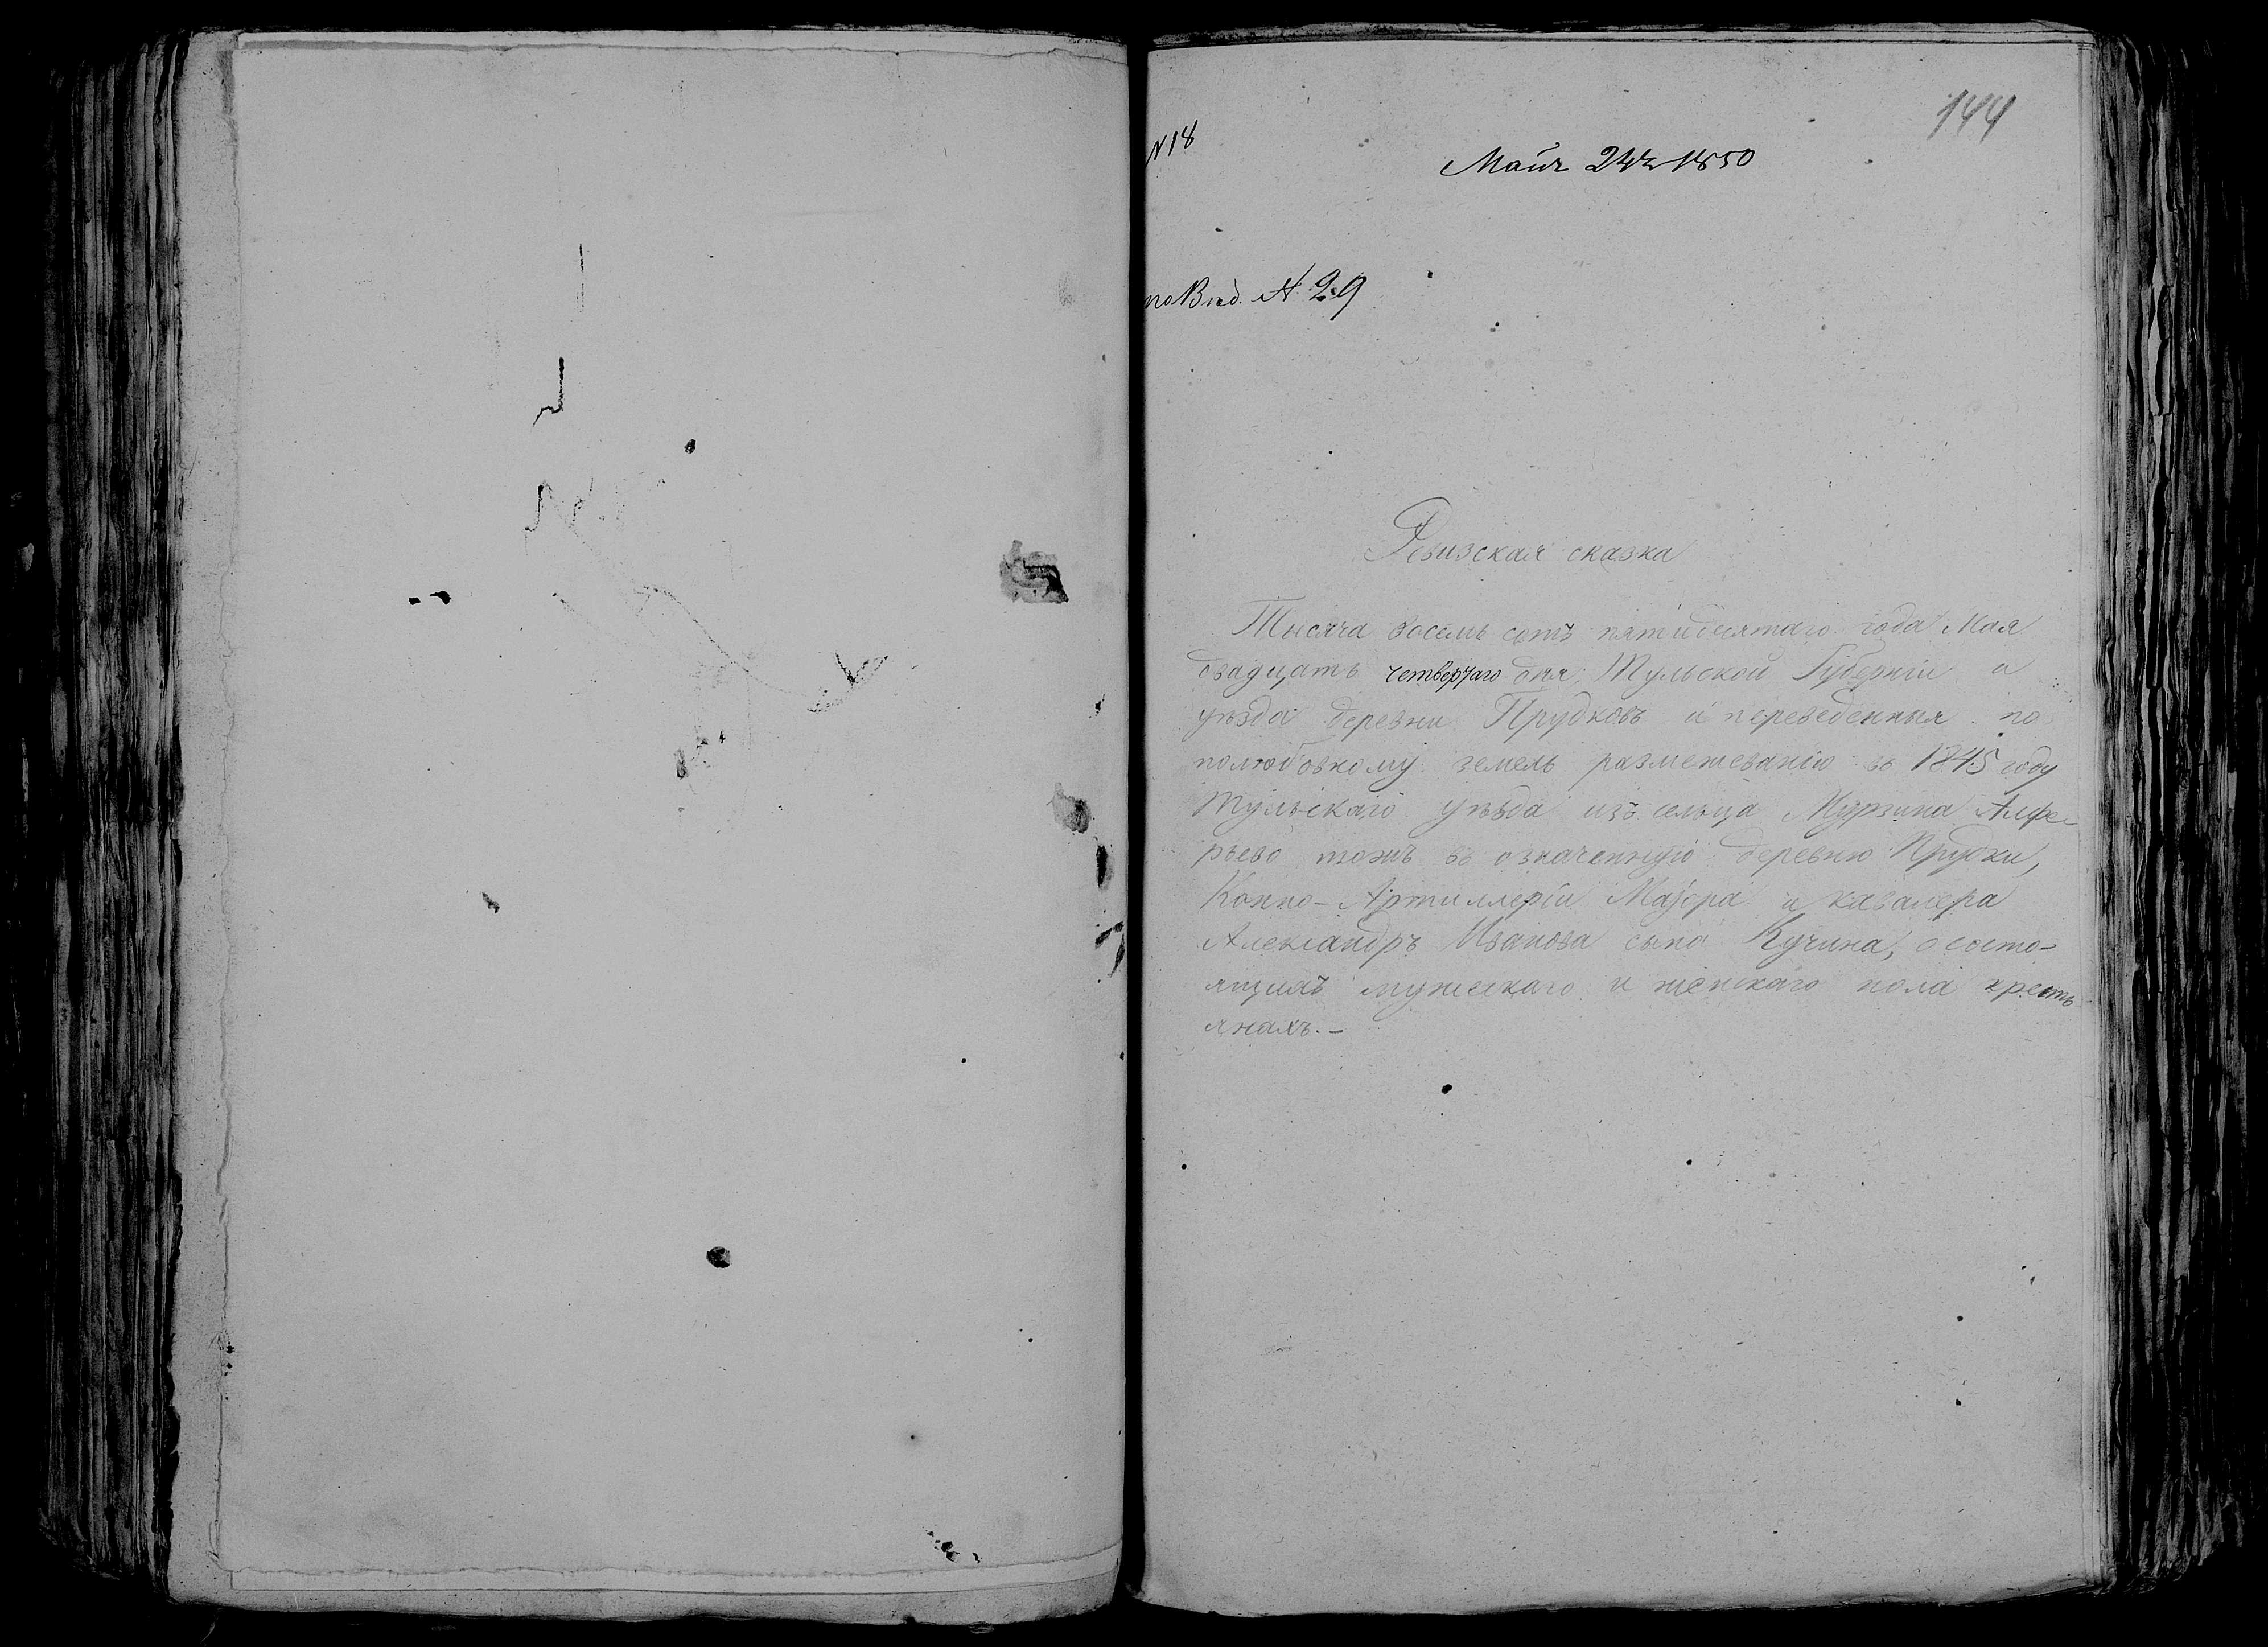 144
N 18
Маія 24го 1850
по Вѣд. № 29
Ревизская сказка
Тысяча восемь сотъ пятидесятаго года Мая
двадцать четвертаго дня, Тульской Губерніи и
уѣзда деревни Прудковъ и переведенныя по
полюбовному земель размежеванію въ 1845 году
Тульскаго уѣзда изъ сельца Мурзина Алфе-
рьево тожъ въ означенную деревню Прудки,
Конно-Артиллеріи Маіора и кавалера
Александръ Иванова сына Кучина, о состо-
ящихъ мужескаго и женскаго пола кресть-
янахъ.-